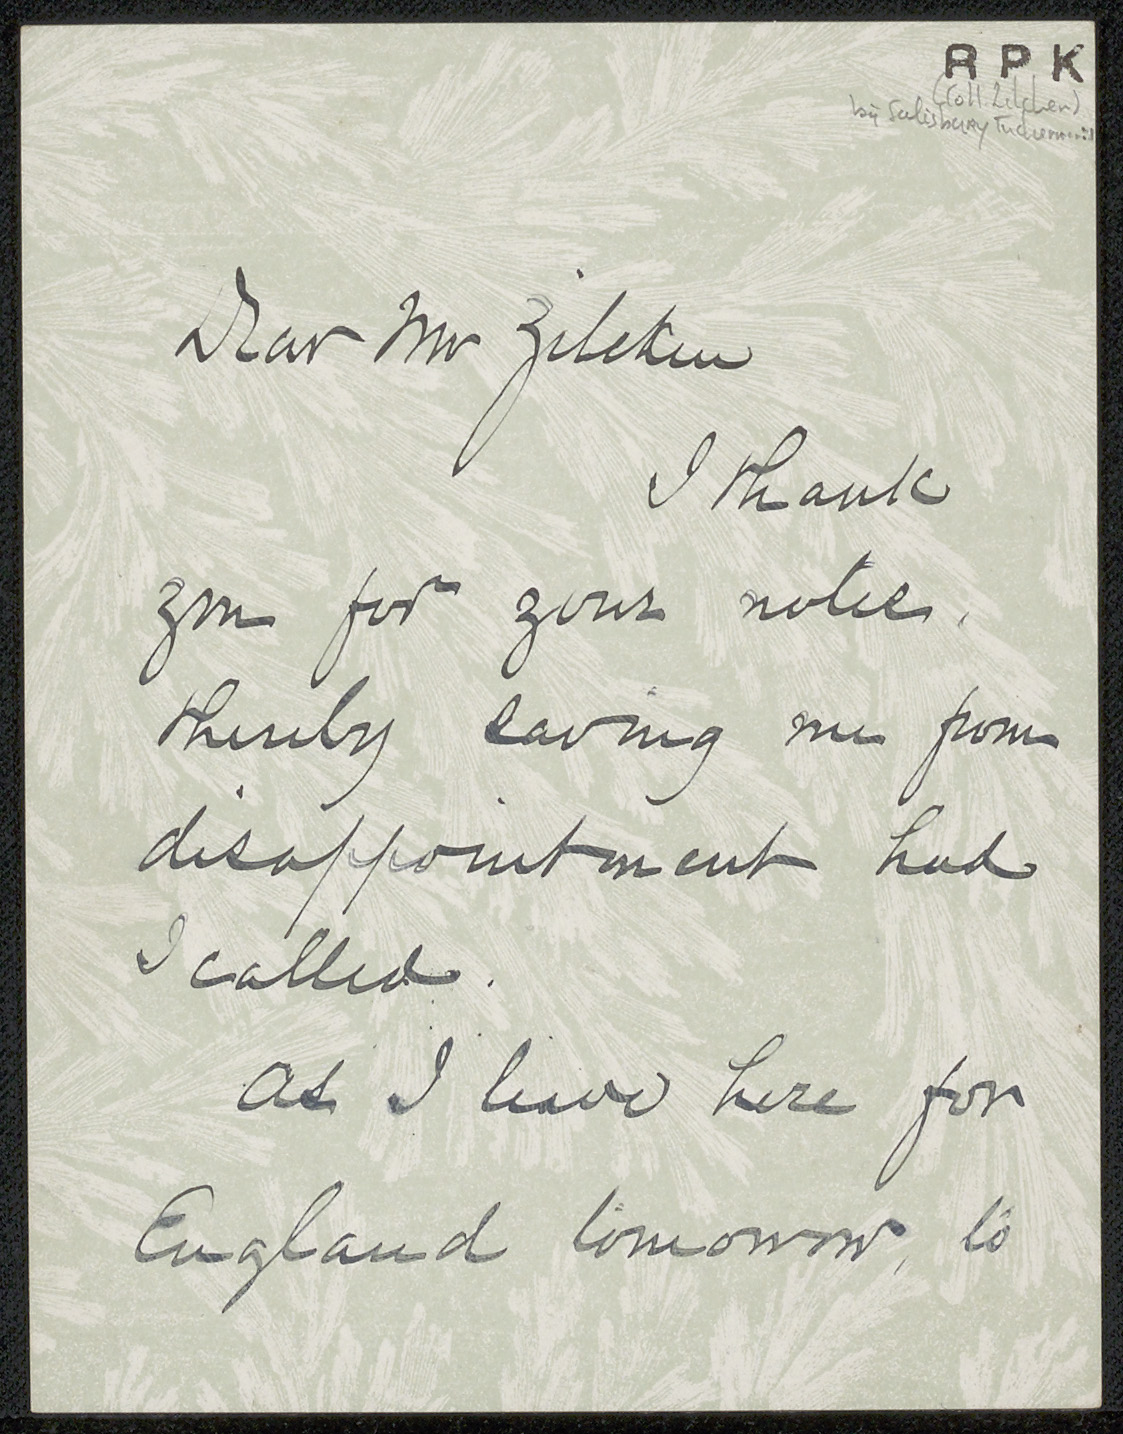 RPK
(Coll. Zilcken)
by Salisbury Tuckerman
Dear Mr Zilcken
I thank
you for your notes,
thereby saving me from
disappointment had
I called.
As I leave here for
England tomorrow, to